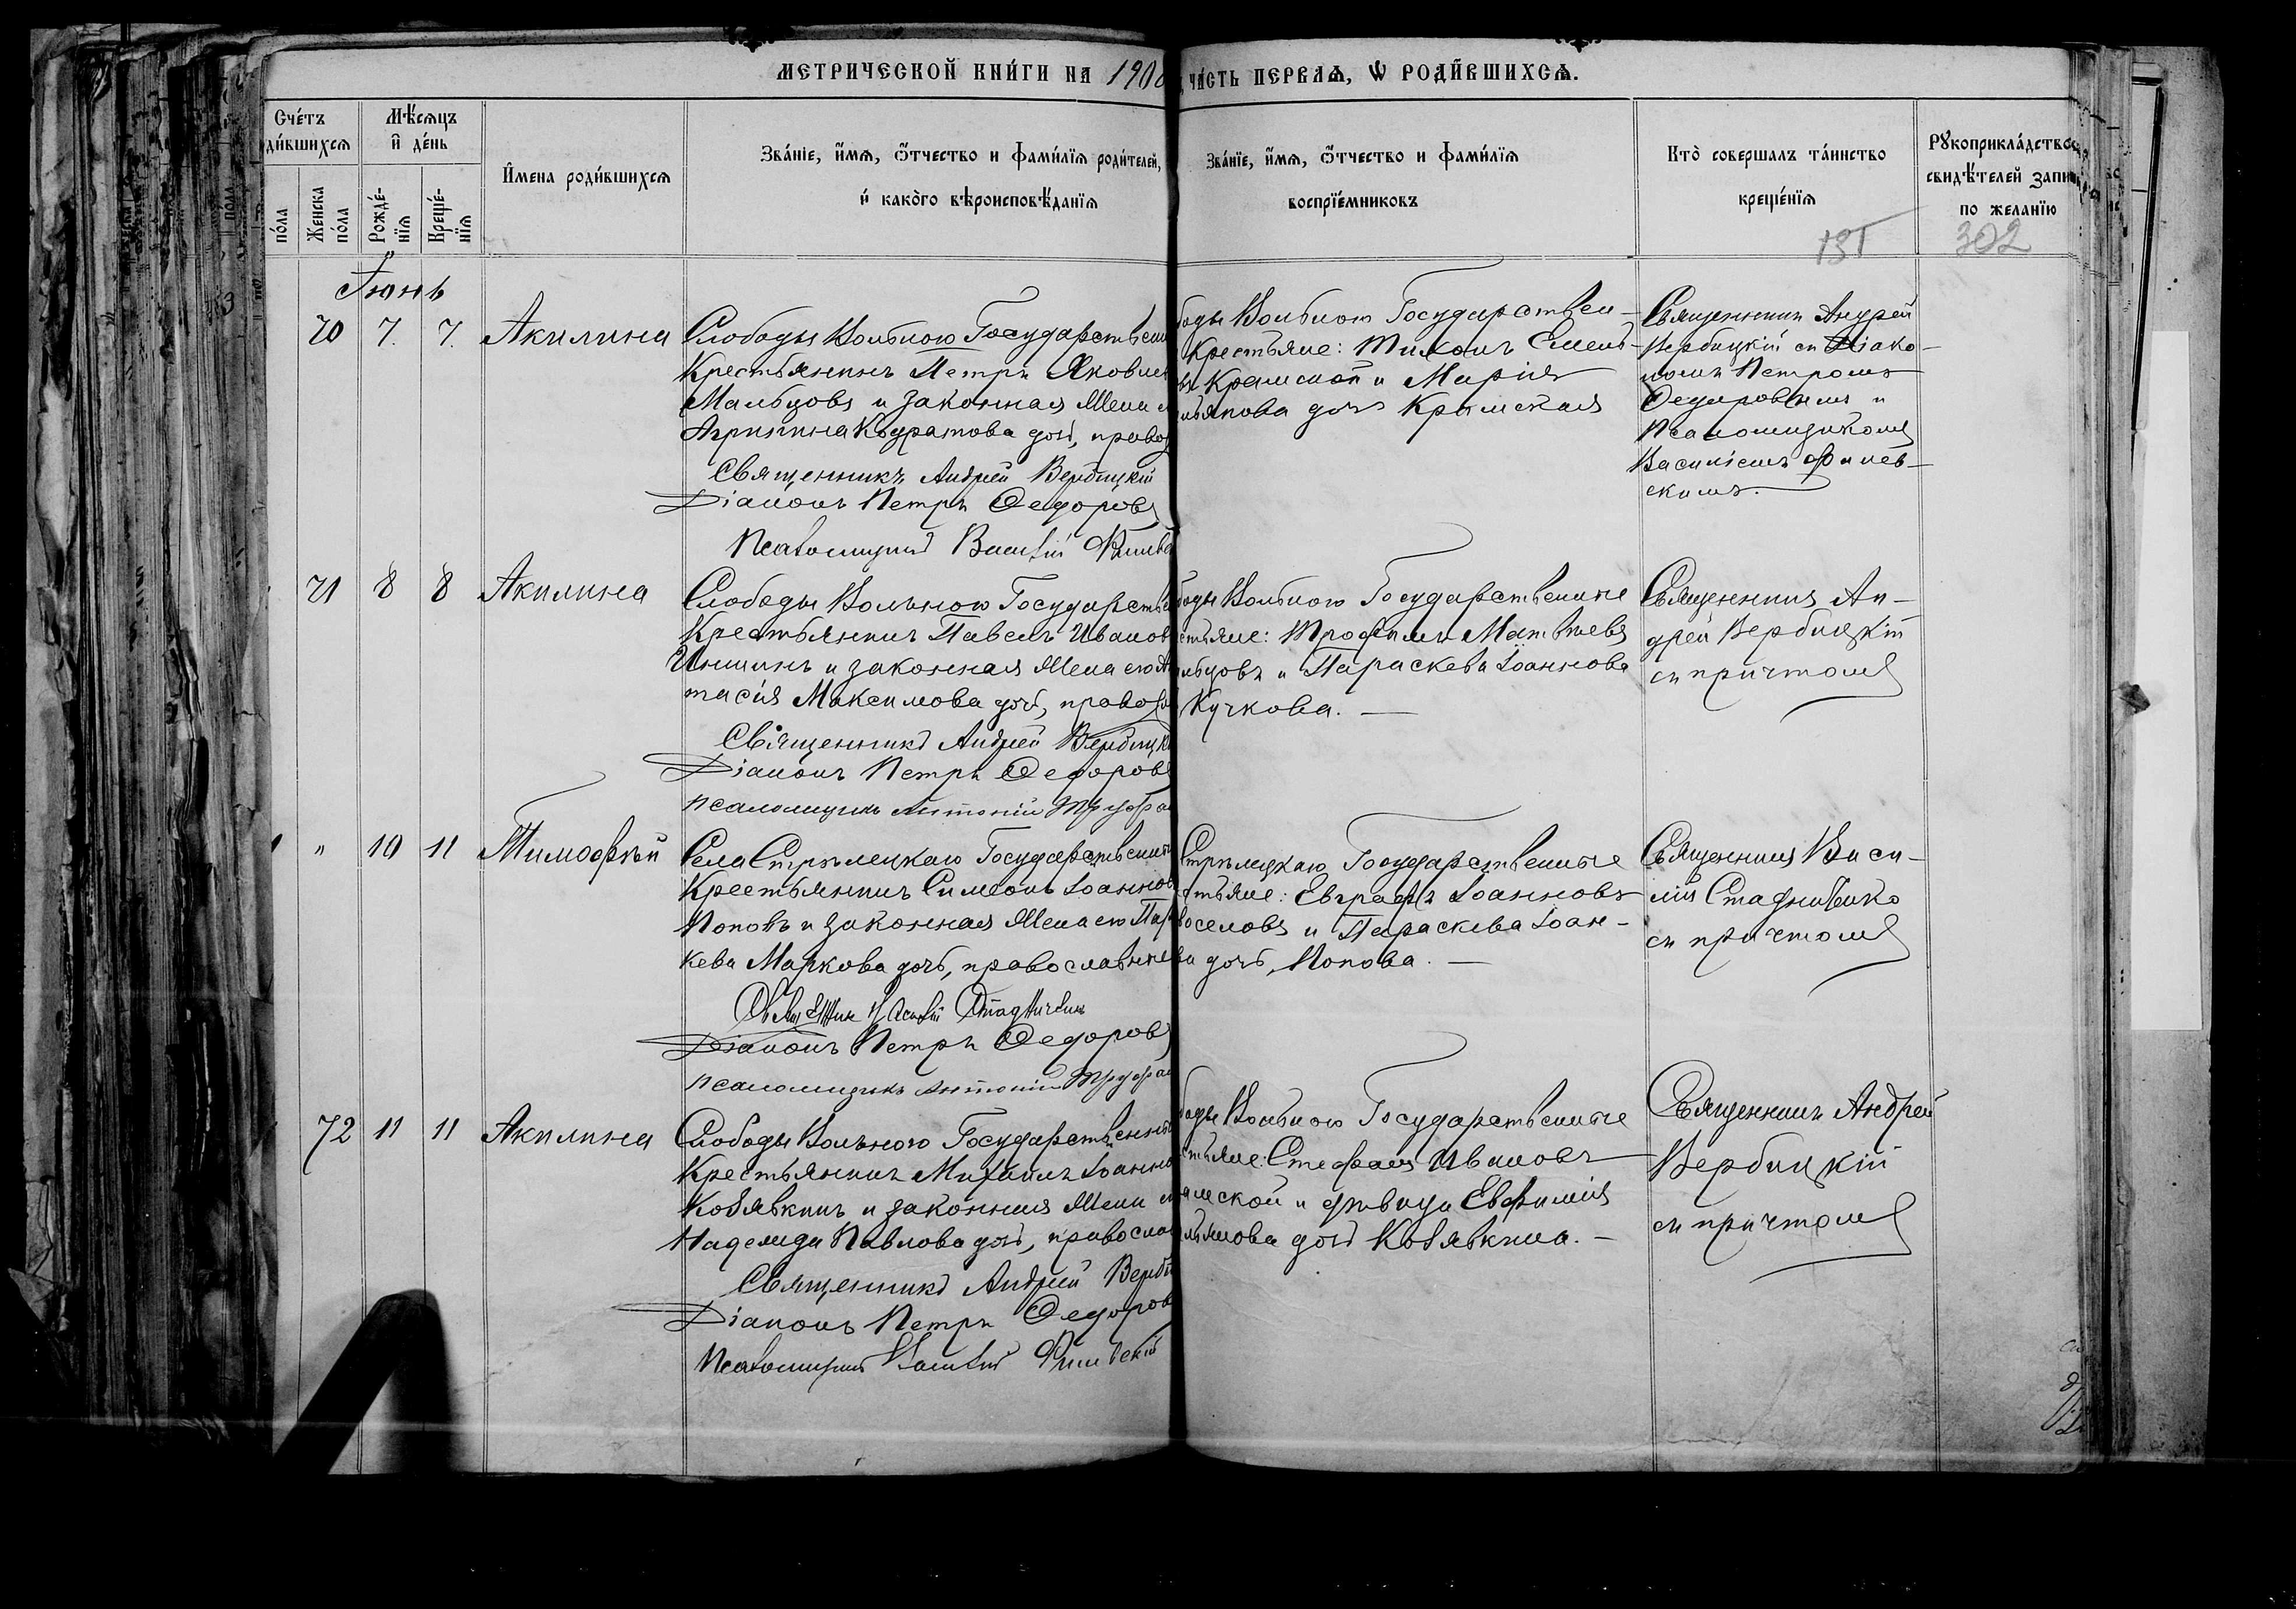 МЕТРИЧЕСКОЙ КНИГИ НА 1908
ЧАСТЬ ПЕРВАЯ, Ѡ РОДИВШИХСЯ.
Счетъ
дившихся
Мѣсяцъ
и день
Имена родившихся
Званіе, имя, отчество и фамилія родителей,
и какого вѣроисповѣданія
пола
Женска
пола
Рожде-
нія
Креще-
нія
Званіе, имя, отчество и фамилія
воспріемниковъ
Кто совершалъ таинство
крещенія
Рукоприкладство
свидѣтелей
по желанію
302
Іюнь
70 7. 7. Акилина
Слободы Вольною Государствен
Крестьянинъ Петръ Яковлев
Мальцовъ и законная жена
Агрипина Кодратова дочь, правос
Священникъ Андрей Вербицкій
Діаконъ Петръ Ѳедоровъ
Псаломщикъ Василій
боды Вольною Государствен-
Крестьяне: Тихонъ Емель-
Крамской и Марія
льянова дочь Крамская
Священникъ Андрей
Вербицкій съ Діако-
номъ Петромъ
Ѳедоровымъ и
Псаломщикомъ
Василіемъ
скимъ.
71 8 8 Акилина
Слободы Вольною Государстве
Крестьянинъ Павелъ Иванов
и законная жена его А
тасія Максимова дочь, правос
Священникъ Андрей Вербицкі
Діаконъ Петръ Ѳедоровъ
псаломщикъ Антоній
боды Вольною Государственные
стьяне: Трофимъ Матвѣевъ
льцовъ и Параскева Іоаннова
Кучкова. —
Священникъ Ан-
дрей Вербицкій
съ причтомъ
" 10 11 Тимофѣй
Села Стрѣлецкаго Государственны
Крестьянинъ Симеонъ Іоаннов
Поповъ и законная жена его Пар
кева Маркова дочь, православные
Священ Василій
Діаконъ Петръ Ѳедоровъ
псаломщикъ Антоній
Стрѣлецкаго Государственные
стьяне: Евграфъ Іоанновъ
воселовъ и Параскева Іоан-
ва дочь, Попова. —
Священникъ Васи-
лій
съ причтомъ
72 11 11 Акилина
Слободы Вольного Государственны
Крестьянинъ Михаилъ Іоаннов
Кобявкинъ и законная жена
Надежда Павлова дочь, правосла
Священникъ Андрей Верби
Діаконъ Петръ Ѳедоров
Псаломщикъ Василій
боды Вольною Государственные
стьяне: Стефанъ Ивановъ
амской и дѣвица Евфимія
льянова дочь Кобявкина. —
Священникъ Андрей
Вербицкій
съ причтомъ